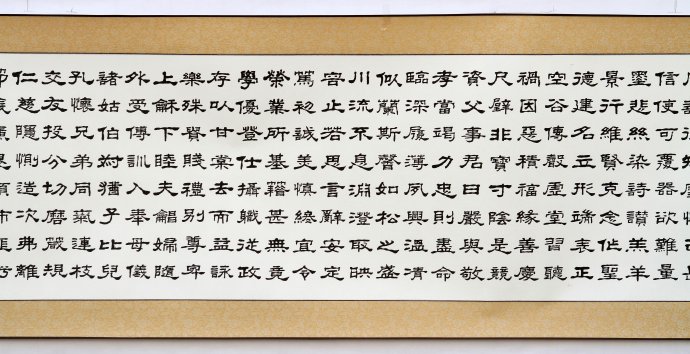 信使可覆器欲難量
墨悲絲染詩讚羔羊
景行維賢克念作聖
德建名立形端表正
空谷傳聲虛堂習聽
禍因惡積福緣善慶
尺璧非寶寸陰是競
資父事君曰嚴與敬
孝當竭力忠則盡命
臨深履薄夙興溫凊
似蘭斯馨如松之盛
川流不息淵澄取映
容止若思言辭安定
篤初誠美慎終宜令
榮業所基籍甚無竟
學優登仕攝職從政
存以甘棠去而益詠
樂殊貴賤禮別尊卑
上龢下睦夫唱婦隨
外受傅訓入奉母儀
諸姑伯叔猶子比兒
孔懷兄弟同氣連枝
交友投分切磨箴規
仁慈隱惻造次弗離